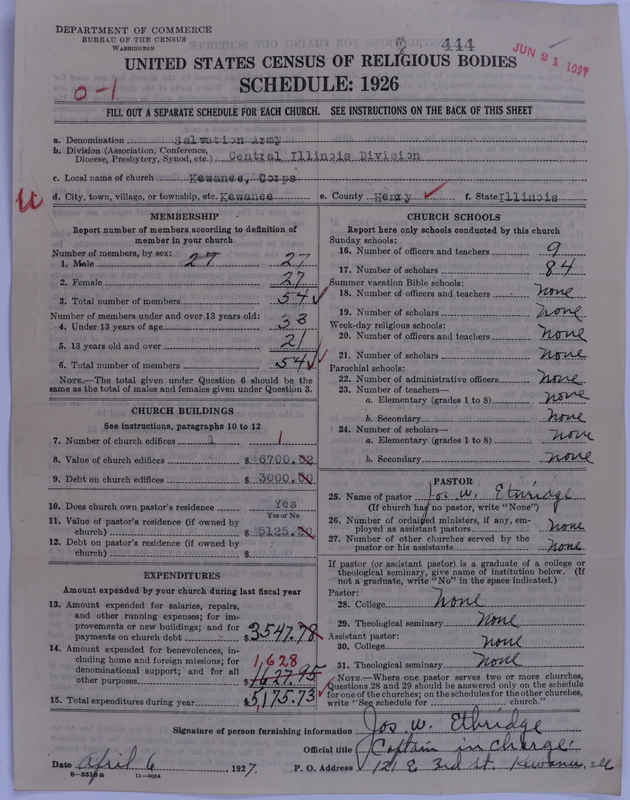 DEPARTMENT OF COMMERCE
BUREAU OF THE CENSUS
WASHINGTON
444
JUN 21 1927
UNITED STATES CENSUS OF RELIGIOUS BODIES
SCHEDULE: 1926
0-1
FILL OUT A SEPARATE SCHEDULE FOR EACH CHURCH. SEE INSTRUCTIONS ON THE BACK OF THIS SHEET
a. Denomination Salvation Army
b. Division (Association, Conference, Diocese, Presbytery, Synod, etc.) Central Illinois Division
c. Local name of church Kewanee, Corps
d. City, town, village, or township, etc. Kewanee e. County Henry f. State Illinois
MEMBERSHIP
Report number of members according to definition of
member in your church
Number of members, by sex:
1. Male 27 27
2. Female 27
3. Total number of members 54
Number of members under and over 13 years old:
4. Under 13 years of age 33
5. 13 years old and over 21
6. Total number of members 54
NOTE.—The total given under Question 6 should be the
same as the total of males and females given under Question 3.
CHURCH BUILDINGS
See instructions, paragraphs 10 to 12
7. Number of church edifices 1 1
8. Value of church edifices $ 6700.02
9. Debt on church edifices $ 3000.00
10. Does church own pastor's residence Yes
Yes or No
11. Value of pastor's residence (if owned by
church) $ 5125.20
12. Debt on pastor's residence (if owned by
church) $
EXPENDITURES
Amount expended by your church during last fiscal year
13. Amount expended for salaries, repairs,
and other running expenses; for im-
provements or new buildings; and for
payments on church debt $ 3547.78
14. Amount expended for benevolences, in-
cluding home and foreign missions; for
denominational support; and for all
other purposes $ 1627.95
1,628
15. Total expenditures during year $ 5,175.73
CHURCH SCHOOLS
Report here only schools conducted by this church
Sunday schools:
16. Number of officers and teachers 9
17. Number of scholars 84
Summer vacation Bible schools:
18. Number of officers and teachers none
19. Number of scholars none
Week-day religious schools:
20. Number of officers and teachers none
21. Number of scholars none
Parochial schools:
22. Number of administrative officers none
23. Number of teachers—
a. Elementary (grades 1 to 8) none
b. Secondary none
24. Number of scholars—
a. Elementary (grades 1 to 8) none
b. Secondary none
PASTOR
25. Name of pastor Jos. W. Etbridge
(If church has no pastor, write "None")
26. Number of ordained ministers, if any, em-
ployed as assistant pastors none
27. Number of other churches served by the
pastor or his assistants none
If pastor (or assistant pastor) is a graduate of a college or
theological seminary, give name of institution below. (If
not a graduate, write "No" in the space indicated.)
Pastor:
28. College none
29. Theological seminary none
Assistant pastor:
30. College none
31. Theological seminary none
NOTE.—Where one pastor serves two or more churches,
Questions 28 and 29 should be answered only on the schedule
for one of the churches; on the schedules for the other churches,
write "See schedule for church."
Signature of person furnishing information Jos. W. Etbridge
Official title Captain in charge
Date April 6, 1927. P. O. Address 121 E 3rd St. Kewanee, Ill
8-5518a 11-9054